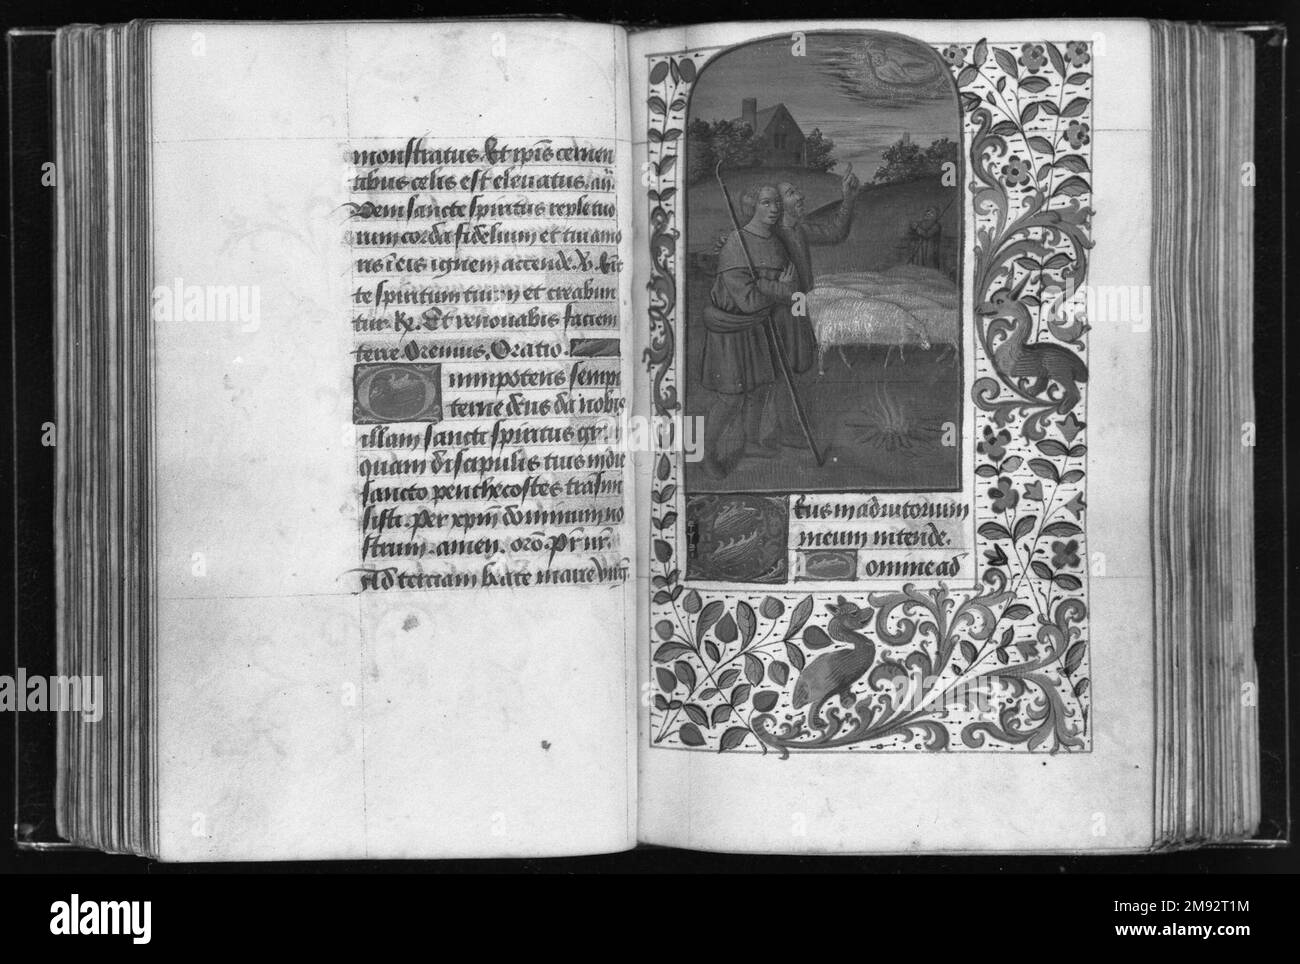 monstratus. Et ip̄is cernen
tibus celis est eleuatus. an̄.
Veni sancte spiritus reple tuo
rum corda fidelium et tui amo
ris in eis ignem accende. v̄. Emit
te spiritum tuum et creabun
tur. R̄. Et renouabis faciem
terre. Oremus. Oratio.
Omnipotens sempi
terne deus da nobis
illam sancti spiritus gr̄
quam discipulis tuis in die
sancto penthecostes trasm
sisti. Per xp̄m dominum no
strum. amen. or̄o. Pr̄ nr̄.
Ad terciam beate marie virḡ
Deus in adiutorium
meum intende.
Domine ad
alamy
Image ID: 2M92T1M
www.alamy.com